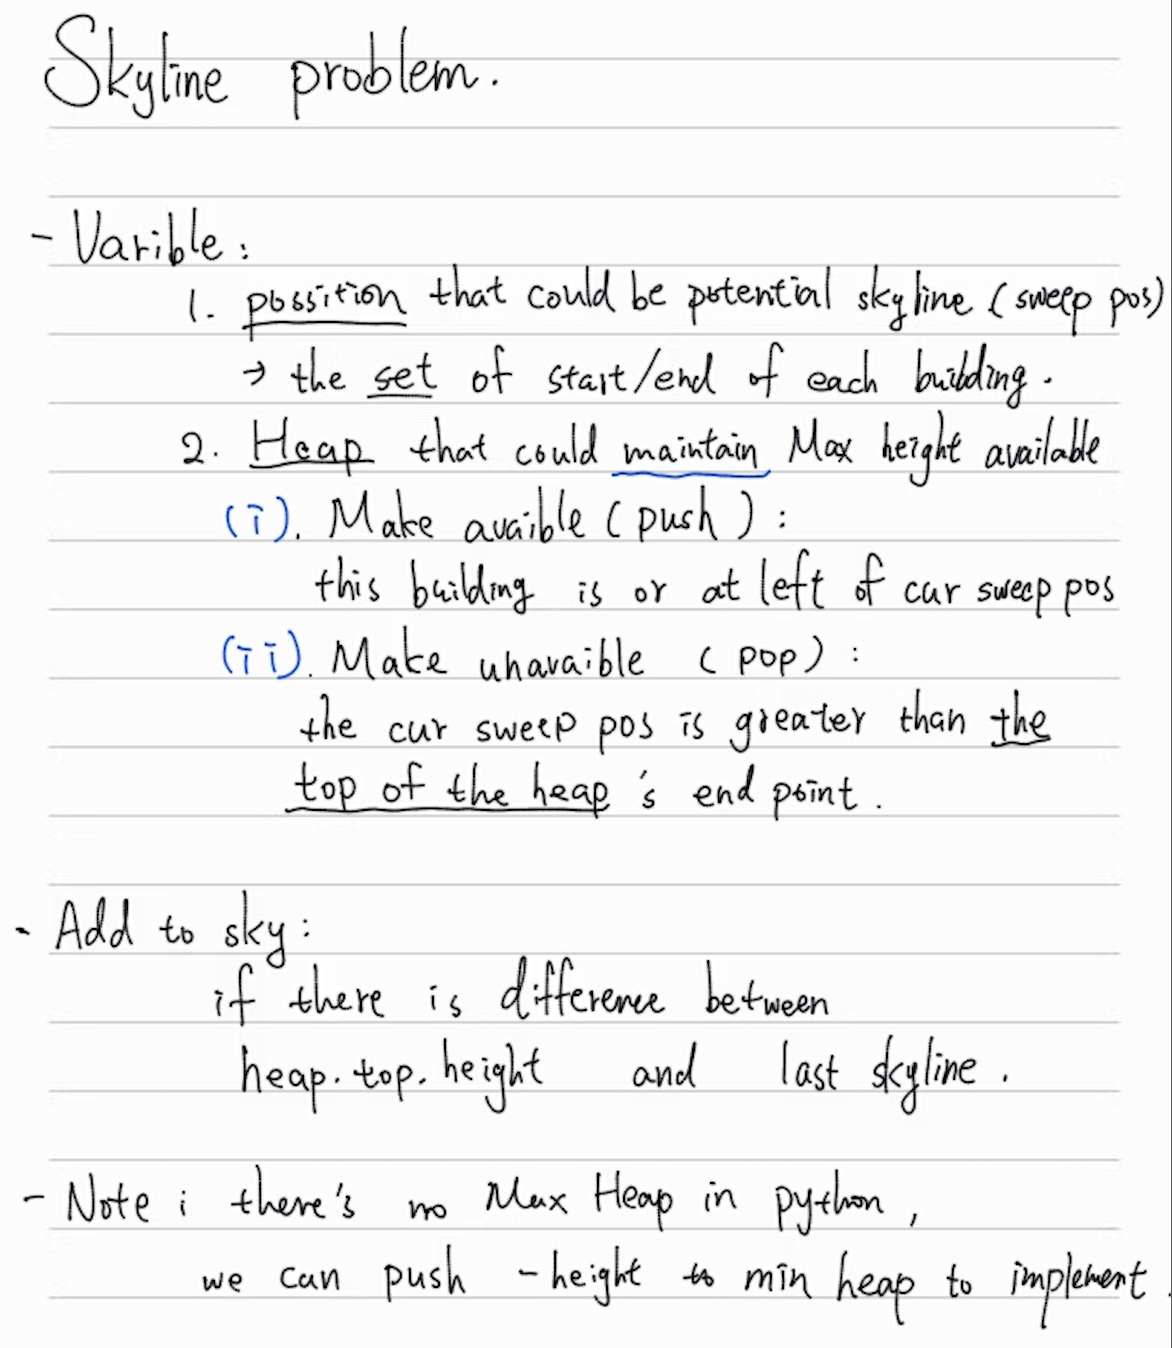 Skyline problem.
- Varible:
1. possition that could be potential skyline (sweep pos)
→ the set of start/end of each building.
2. Heap that could maintain Max height available
(i). Make avaible (push):
this building is or at left of cur sweep pos
(ii). Make unavaible (pop):
the cur sweep pos is greater than the
top of the heap's end point.
- Add to sky:
if there is difference between
heap.top.height and last skyline.
- Note: there's no Max Heap in python,
we can push -height to min heap to implement.